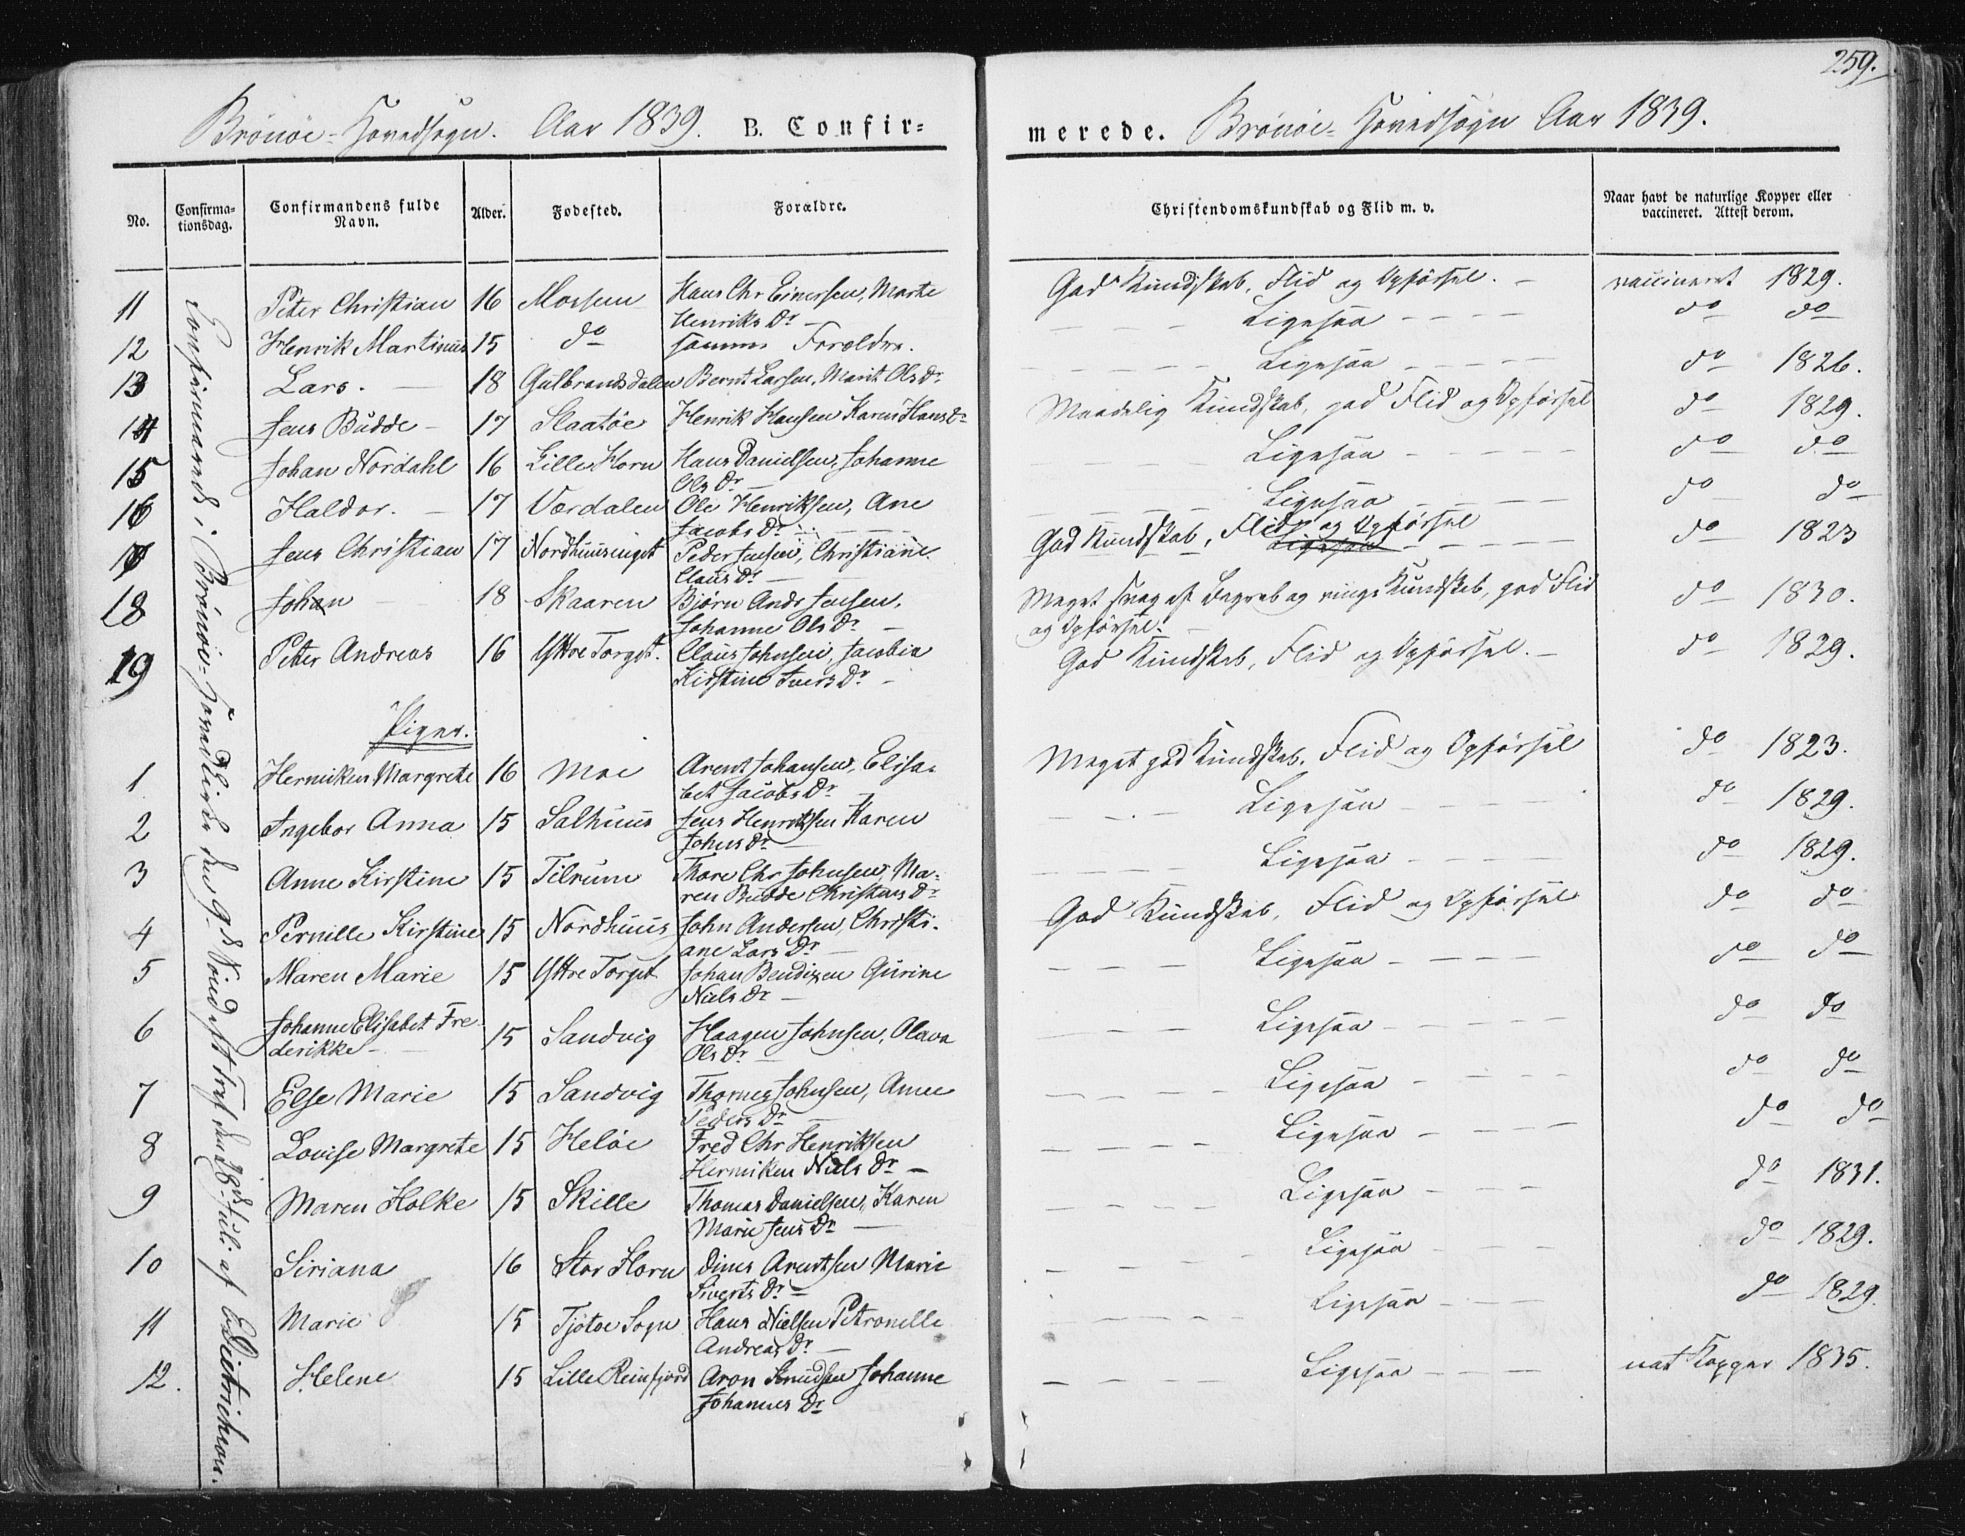 259.
Brönöe Hovedsogn. Aar 1839. B. Confir=
merede. Brönöe Hovedsogn Aar 1839.
No. Confirma-tionsdag. Confirmandens fulde Navn. Alder. Fødested. Forældre. Christendomskundskab og Flid m. v. Naar havt de naturlige Kopper eller vaccineret. Attest derom.
Confirmerede i Brönöe Hovedkirke den 9de Søndag efter Trefoldighed Juli af Dietrichson.
11 Peter Christian 16 Mosen Hans Chr Einersen, Marte God Kundskab, Flid og Opförsel. vaccineret 1829.
Henriks Dr
12 Henrik Martinus 15 do samme Forældre. Ligesaa do do
13 Lars. 18 Gulbrandsdalen Bernt Larsen, Marit Ols Dr Ligesaa do 1826.
14 Jens Budde 17 Slaatöe Henrik Hansen Karen Hans Dr Maadelig Kundskab, god Flid og Opförsel do 1829.
15 Johan Nordahl 16 Lille Horn Hans Danielsen, Johanne Ligesaa do do
Ols Dr
16 Haldor. 17 Værdalen Ole Henriksen, Ane Ligesaa do do
Jacobs Dr
17 Jens Christian 17 Nordhuusinget Peder Jensen, Christiane God Kundskab, Flid og Opförsel do 1823
Claus Dr Ligesaa
18 Johan 18 Skaaren Björn Andr Jensen, Meget svag af Begreb og ringe Kundskab, god Flid do 1830.
Johanne Ols Dr og Opförsel.
19 Peter Andreas 16 Yttre Torget. Claus Johnsen, Jacobia God Kundskab, Flid og Opförsel. do 1829.
Kirstine Ivers Dr
Piger.
1 Hermiken Margrete 16 Moe Arent Johansen, Elisa- Meget god Kundskab, Flid og Opförsel do 1823.
bet Jacobs Dr
2 Ingebor Anna 15 Salhuus Jens Henriksen Karen Ligesaa do 1829.
Johns Dr
3 Anne Kirstine 15 Tilrum Thore Chr Johnsen, Ma- Ligesaa do 1829.
ren Budde Christens Dr
4 Pernille Kirstine 15 Nordhuus John Andersen, Christi- God Kundskab, Flid og Opförsel do do
ane Lars Dr
5 Maren Marie 15 Yttre Torget Johan Bendixen Gurine Ligesaa do do
Niels Dr
6 Johanne Elisabet Fre- 15 Sandvig Haagen Johnsen, Olava Ligesaa do do
derikke Ols Dr
7 Else Marie 15 Sandvig Thomes Johnsen, Anne Ligesaa do do
Peders Dr
8 Lovise Margrete 15 Heløe Fred Chr Henriksen Ligesaa do do
Hermiken Niels Dr
9 Maren Holke 15 Skille Thomas Danielsen, Karen Ligesaa do 1831.
Marie Jens Dr
10 Siriana 16 Stor Horn Dines Arentsen Marie Ligesaa do 1829.
Siverts Dr
11 Marie 15 Tjötoe Sogn Hans Nielsen Petronelle Ligesaa do 1829.
Andreas Dr
12. Helene 15 Lille Reinfjord Aron Knudsen Johanne Ligesaa nat Kopper 1835.
Johannes Dr